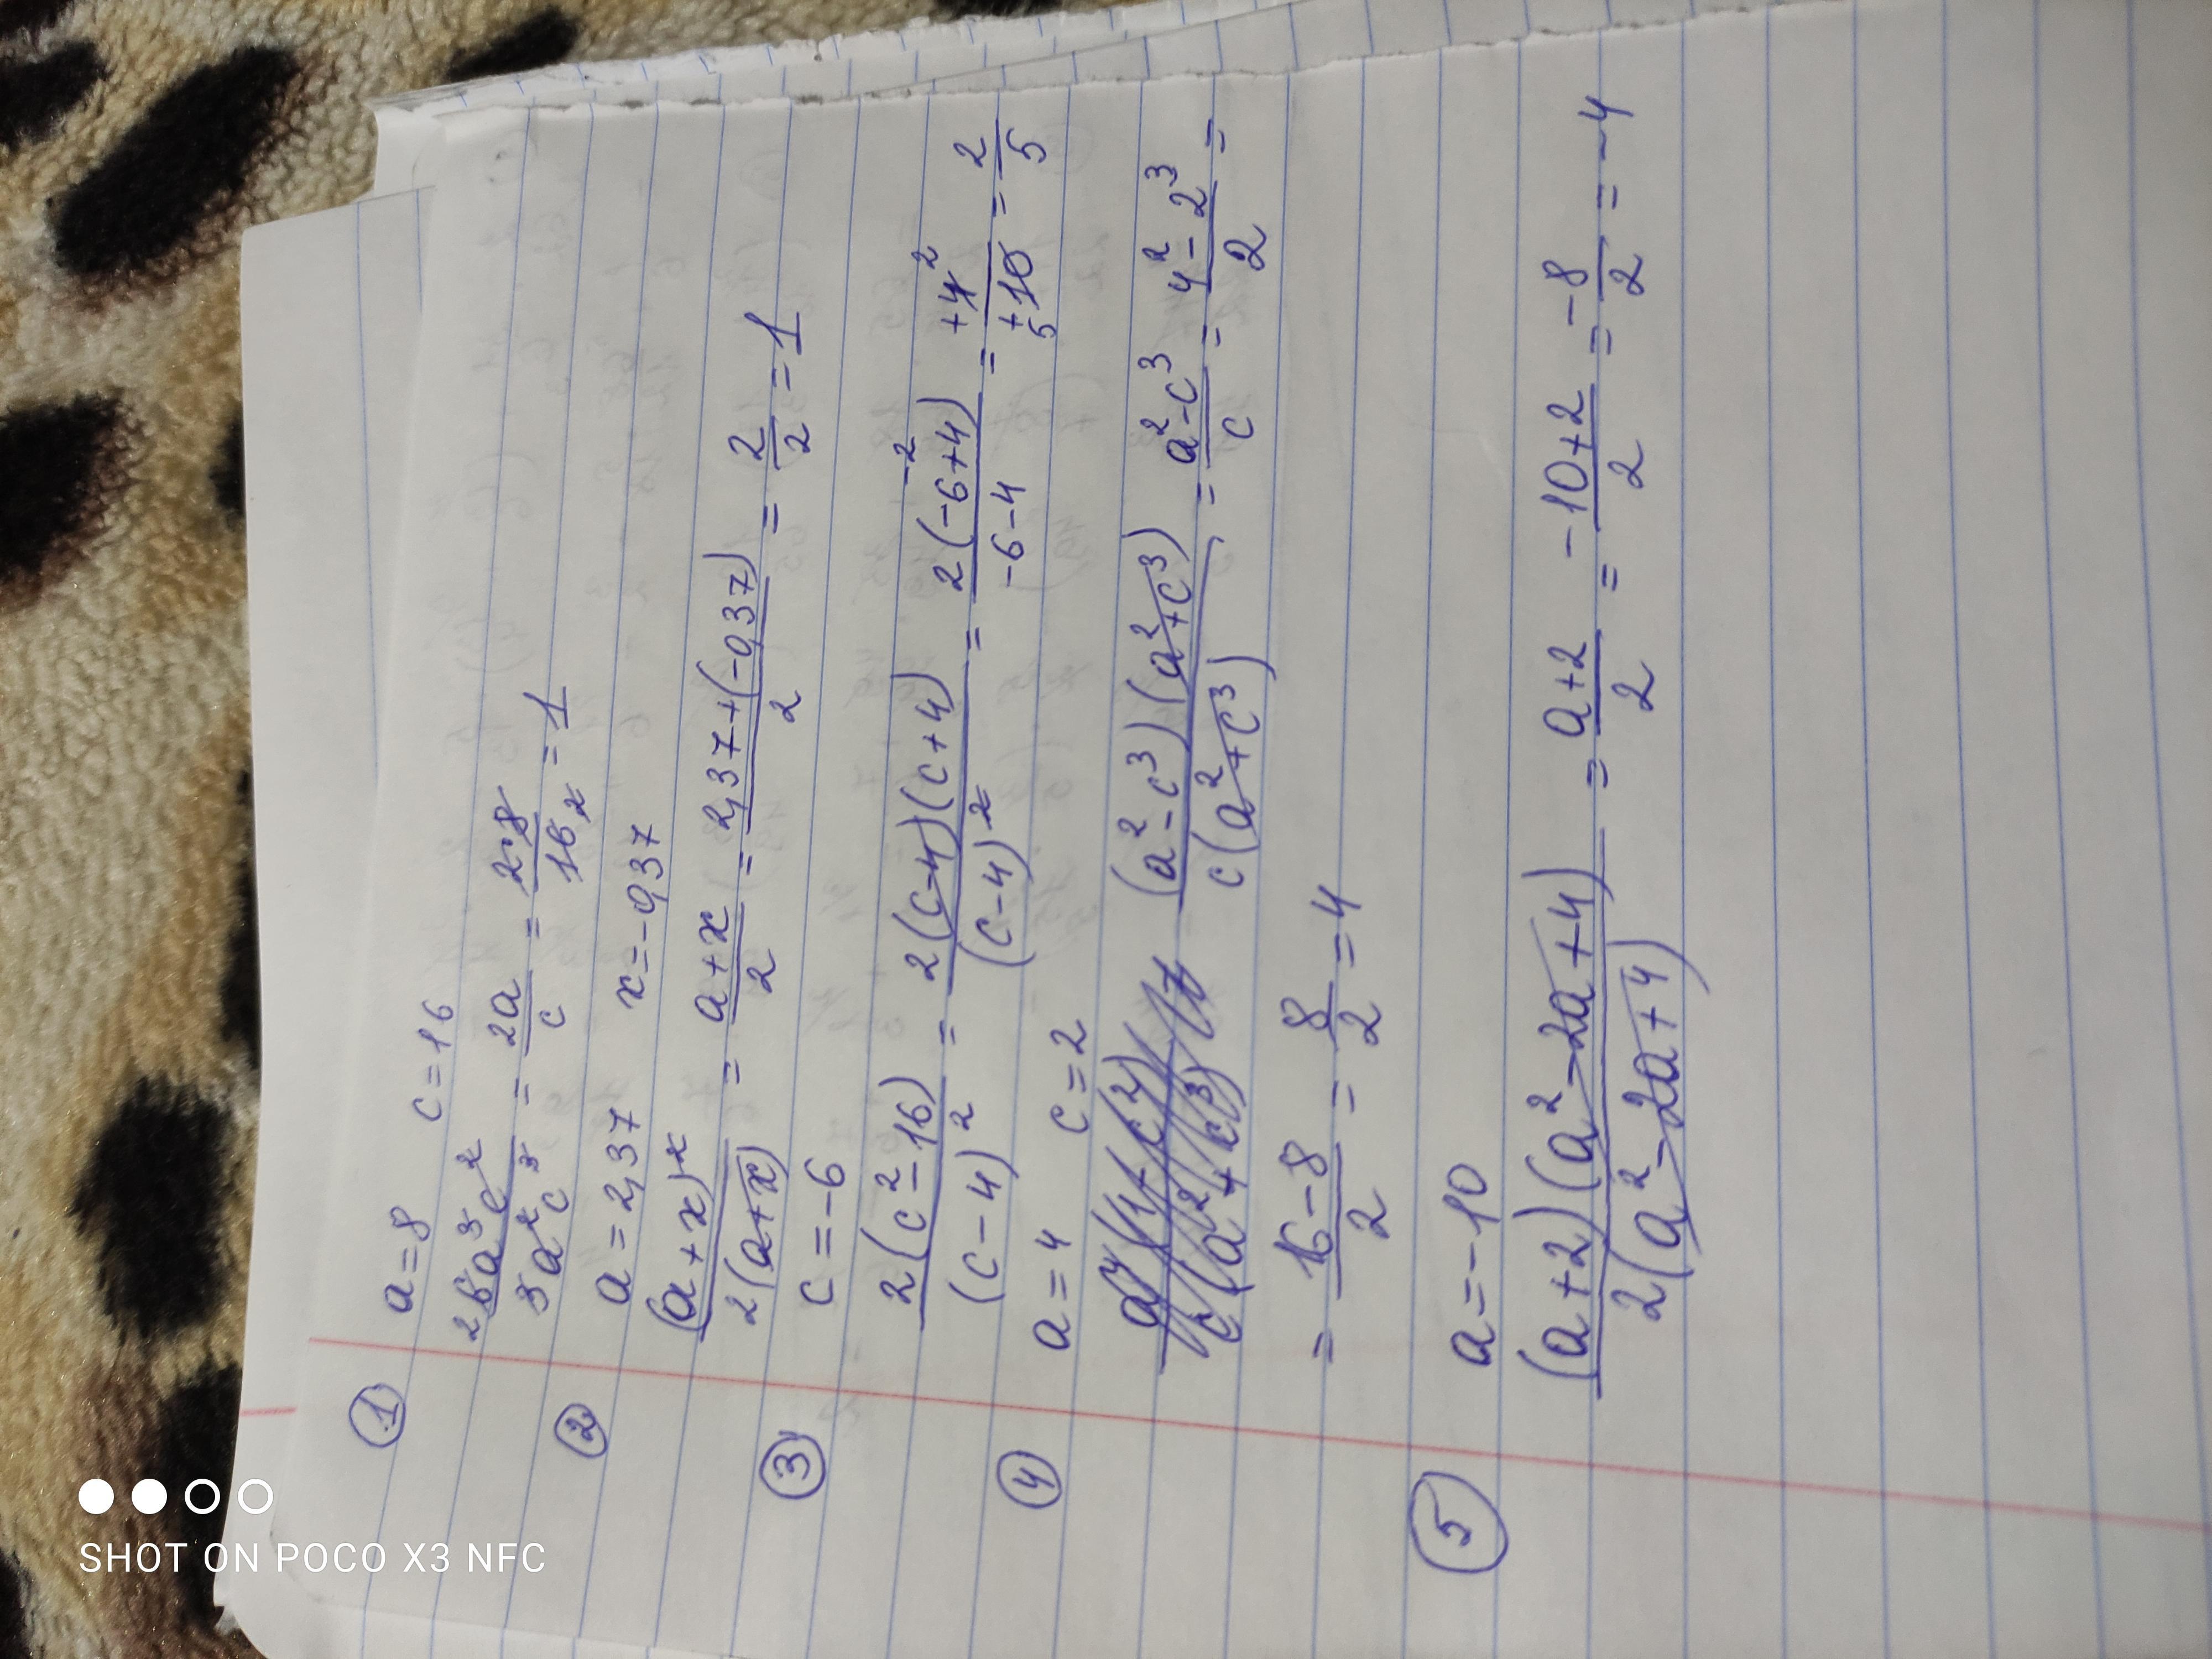 ① a=8 c=16
26a³c² / 3a²c³ = 2a/c = 2·8/16₂ = 1
② a=2,37 x=-0,37
(a+x)² / 2(a+x) = a+x / 2 = 2,37+(-0,37) / 2 = 2/2 = 1
③ c=-6
2(c²-16) / (c-4)² = 2(c-4)(c+4) / (c-4)² = 2(-6+4)⁻² / -6-4 = +4² / +10₅ = 2/5
④ a=4 c=2
(a²-c³)(a²+c³) / c(a²+c³) = a²-c³ / c = 4²-2³ / 2 =
= 16-8 / 2 = 8/2 = 4
⑤ a=-10
(a+2)(a²-2a+4) / 2(a²-2a+4) = a+2 / 2 = -10+2 / 2 = -8/2 = -4
SHOT ON POCO X3 NFC